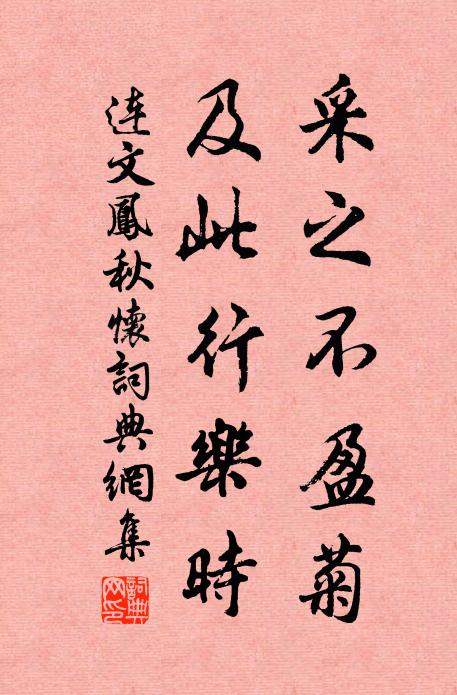 采之不盈菊
及此行樂時
連文鳳秋懷詞典網集
詞典网印